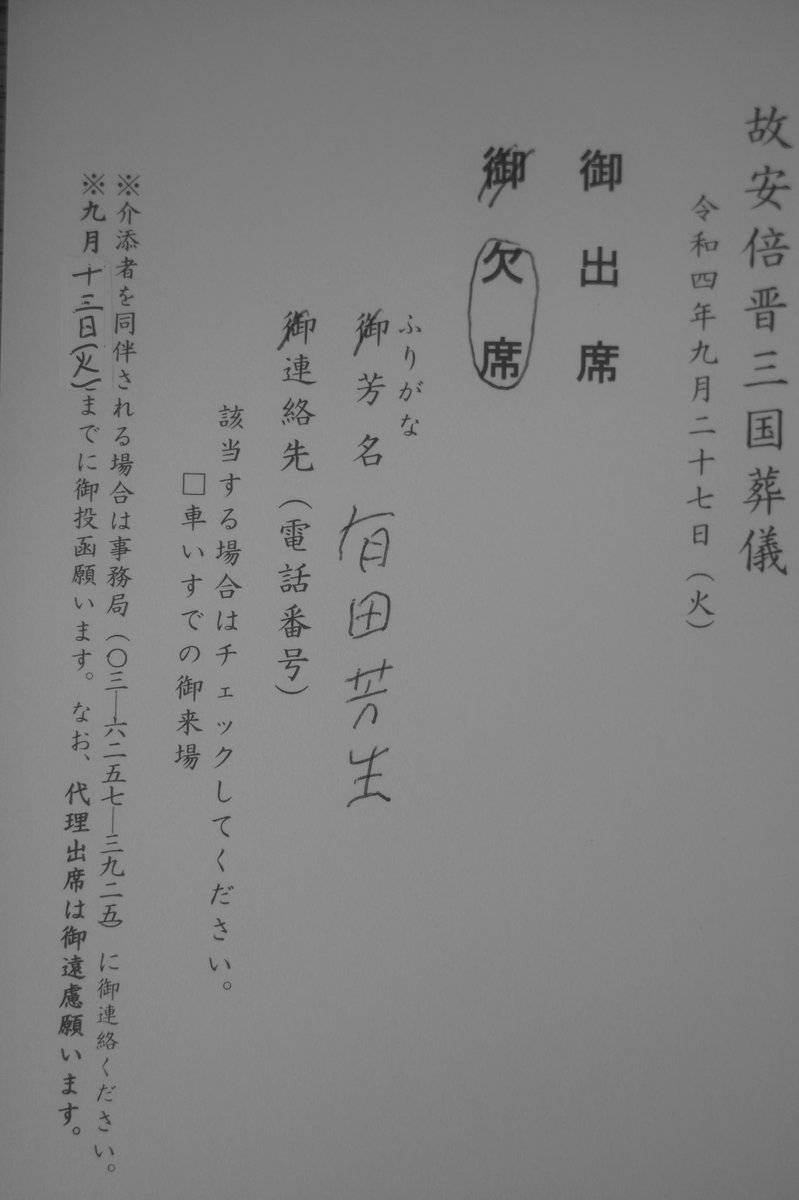 故安倍晋三国葬儀
令和四年九月二十七日（火）
御出席
御欠席
ふりがな
御芳名 有田芳生
御連絡先（電話番号）
該当する場合はチェックしてください。
□車いすでの御来場
※介添者を同伴される場合は事務局（〇三―六二五七―三九二五）に御連絡ください。
※九月十三日(火)までに御投函願います。なお、代理出席は御遠慮願います。